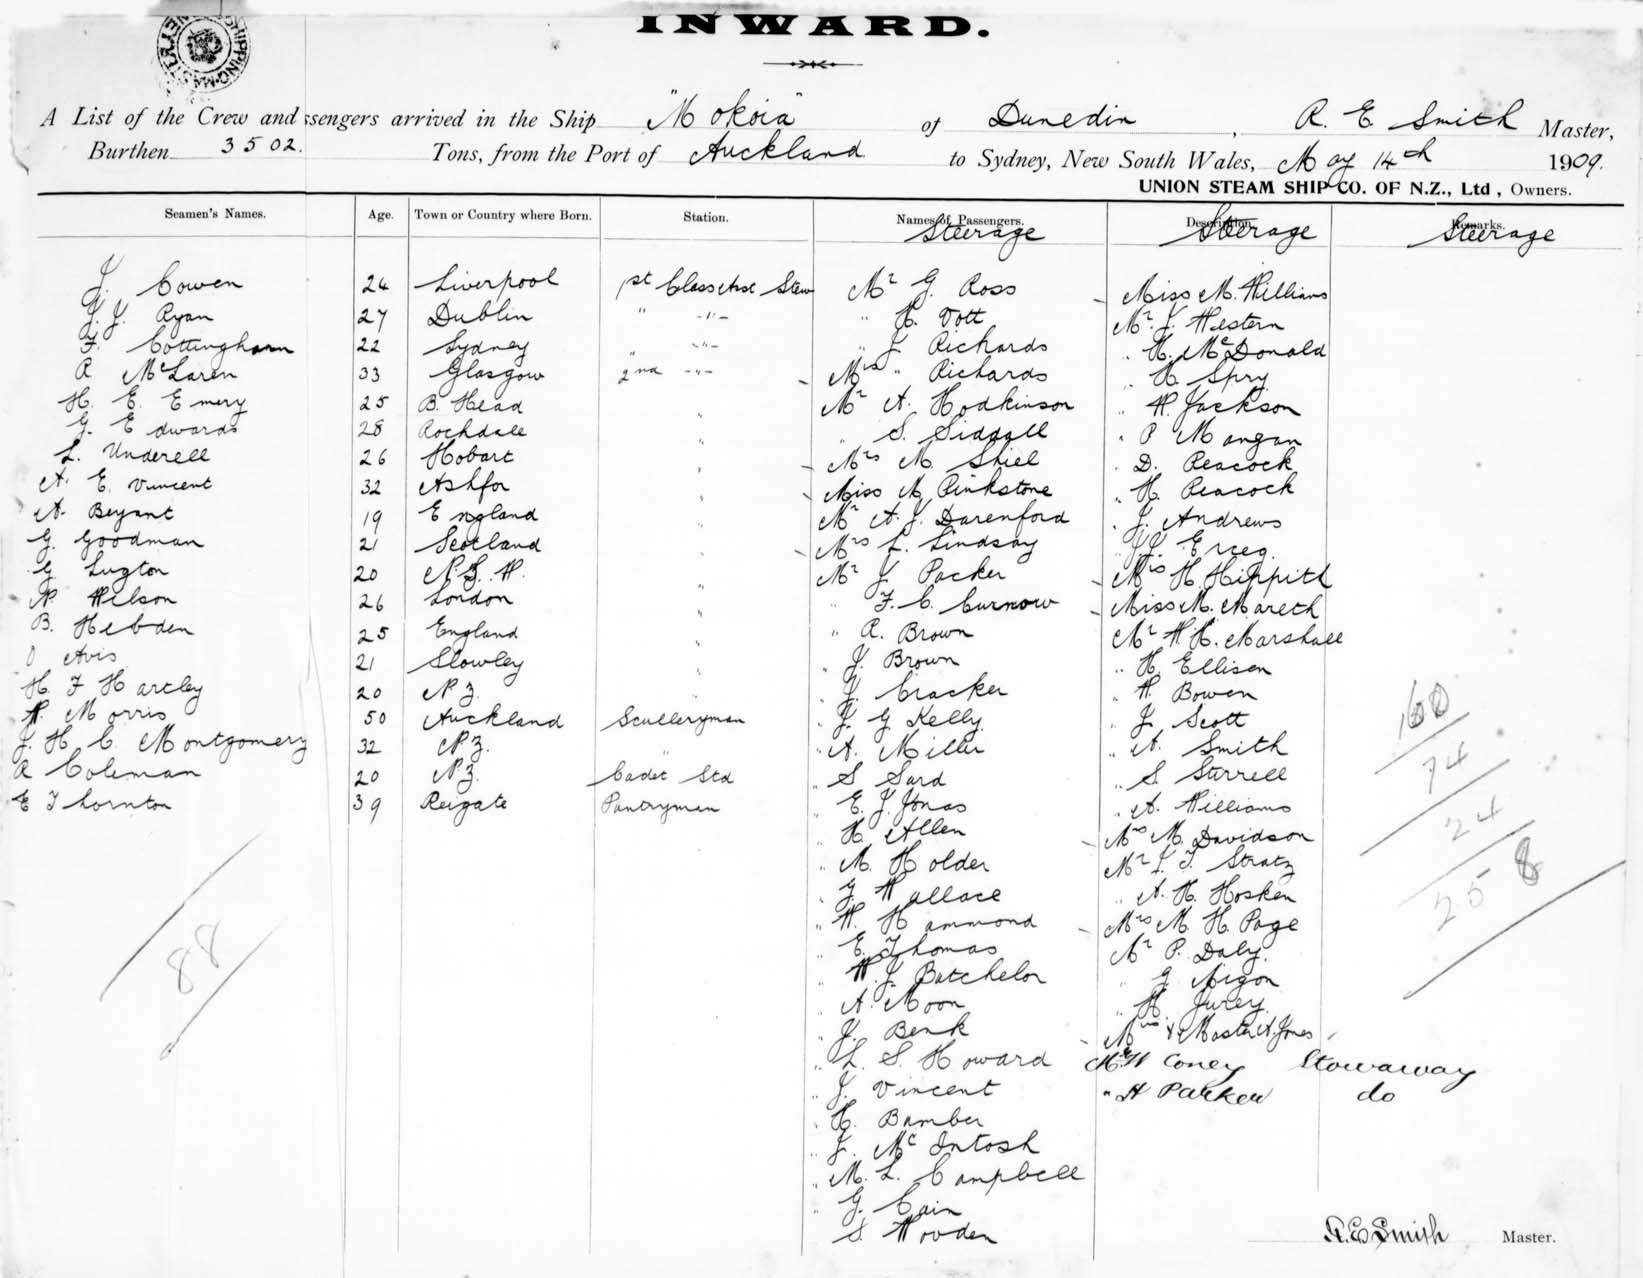 INWARD.
SHIPPING MASTER
A List of the Crew and ssengers arrived in the Ship "Mokoia" of Dunedin, R. E Smith Master,
Burthen 3502. Tons, from the Port of Auckland to Sydney, New South Wales, May 14th 1909.
UNION STEAM SHIP CO. OF N.Z., Ltd, Owners.
Seamen's Names. Age. Town or Country where Born. Station. Names of Passengers. Description Remarks.
Steerage Steerage Steerage
J. Cowen 24 Liverpool 1st Class Asst Stew Mr G. Ross Miss M. Williams
J. J. Ryan 27 Dublin " -"- " H. Vott Mr J. Western
F. Cottingham 22 Sydney " -"- " J Richards " H. McDonald
R McLaren 33 Glasgow 2nd -"- Mrs " Richards " H Spry
H. E. Emery 25 B. Head " Mr A. Hodkinson " W. Jackson
G. Edwards 28 Rochdale " " S. Siddall " P Mangan
L. Underell 26 Hobart " Mrs M. Shiel " D. Peacock
A. E. Vuncent 32 Ashfor " Miss M. Pinkstone " H. Peacock
A. Bryant 19 England " Mr A. J. Darenford " J. Andrews
G. Goodman 21 Scotland " Mrs L. Lindsay " J. Erceg.
G Lugton 20 N. S. W. " Mr J. Packer Mrs H. Hippith
N. Wilson 26 London " " F. C. Curnow Miss M. Mareth
B. Hebden 25 England " " R. Brown Mr W H. Marshall
Avis 21 Slowley " " J. Brown " H. Ellison
H. F Hartley 20 N. Z. " " J. Cracker " W. Bowen
W. Morris 50 Auckland Sculleryman " J. G Kelly " J. Scott
J. H. C. Montgomery 32 N. Z. " " A. Miller " A. Smith
R Coleman 20 N. Z. Cadet Std " S Sard " S. Sturrell
E Thornton 39 Reigate Pantryman " E. J. Jonas " A. Williams
" H Allen Mrs M. Davidson
" M. Holder Mr L. T. Stratz
" G Wallace " A. H. Hosken
" W. Hammond Mrs M. H. Page
" E. Thomas Mr P. Daly.
" W. J. Batchelor " G Migon
" A. Moon " H. Jurey
" J. Benk Mrs & Master A. Jones
" L. S. Howard Mr W Coney Stowaway
" J. Vincent " H Parker do
" H. Bamber
" J. McIntosh
" M. L. Campbell
" G. Cain
S Wovden
88
160
74
24
258
R. E. Smith Master.